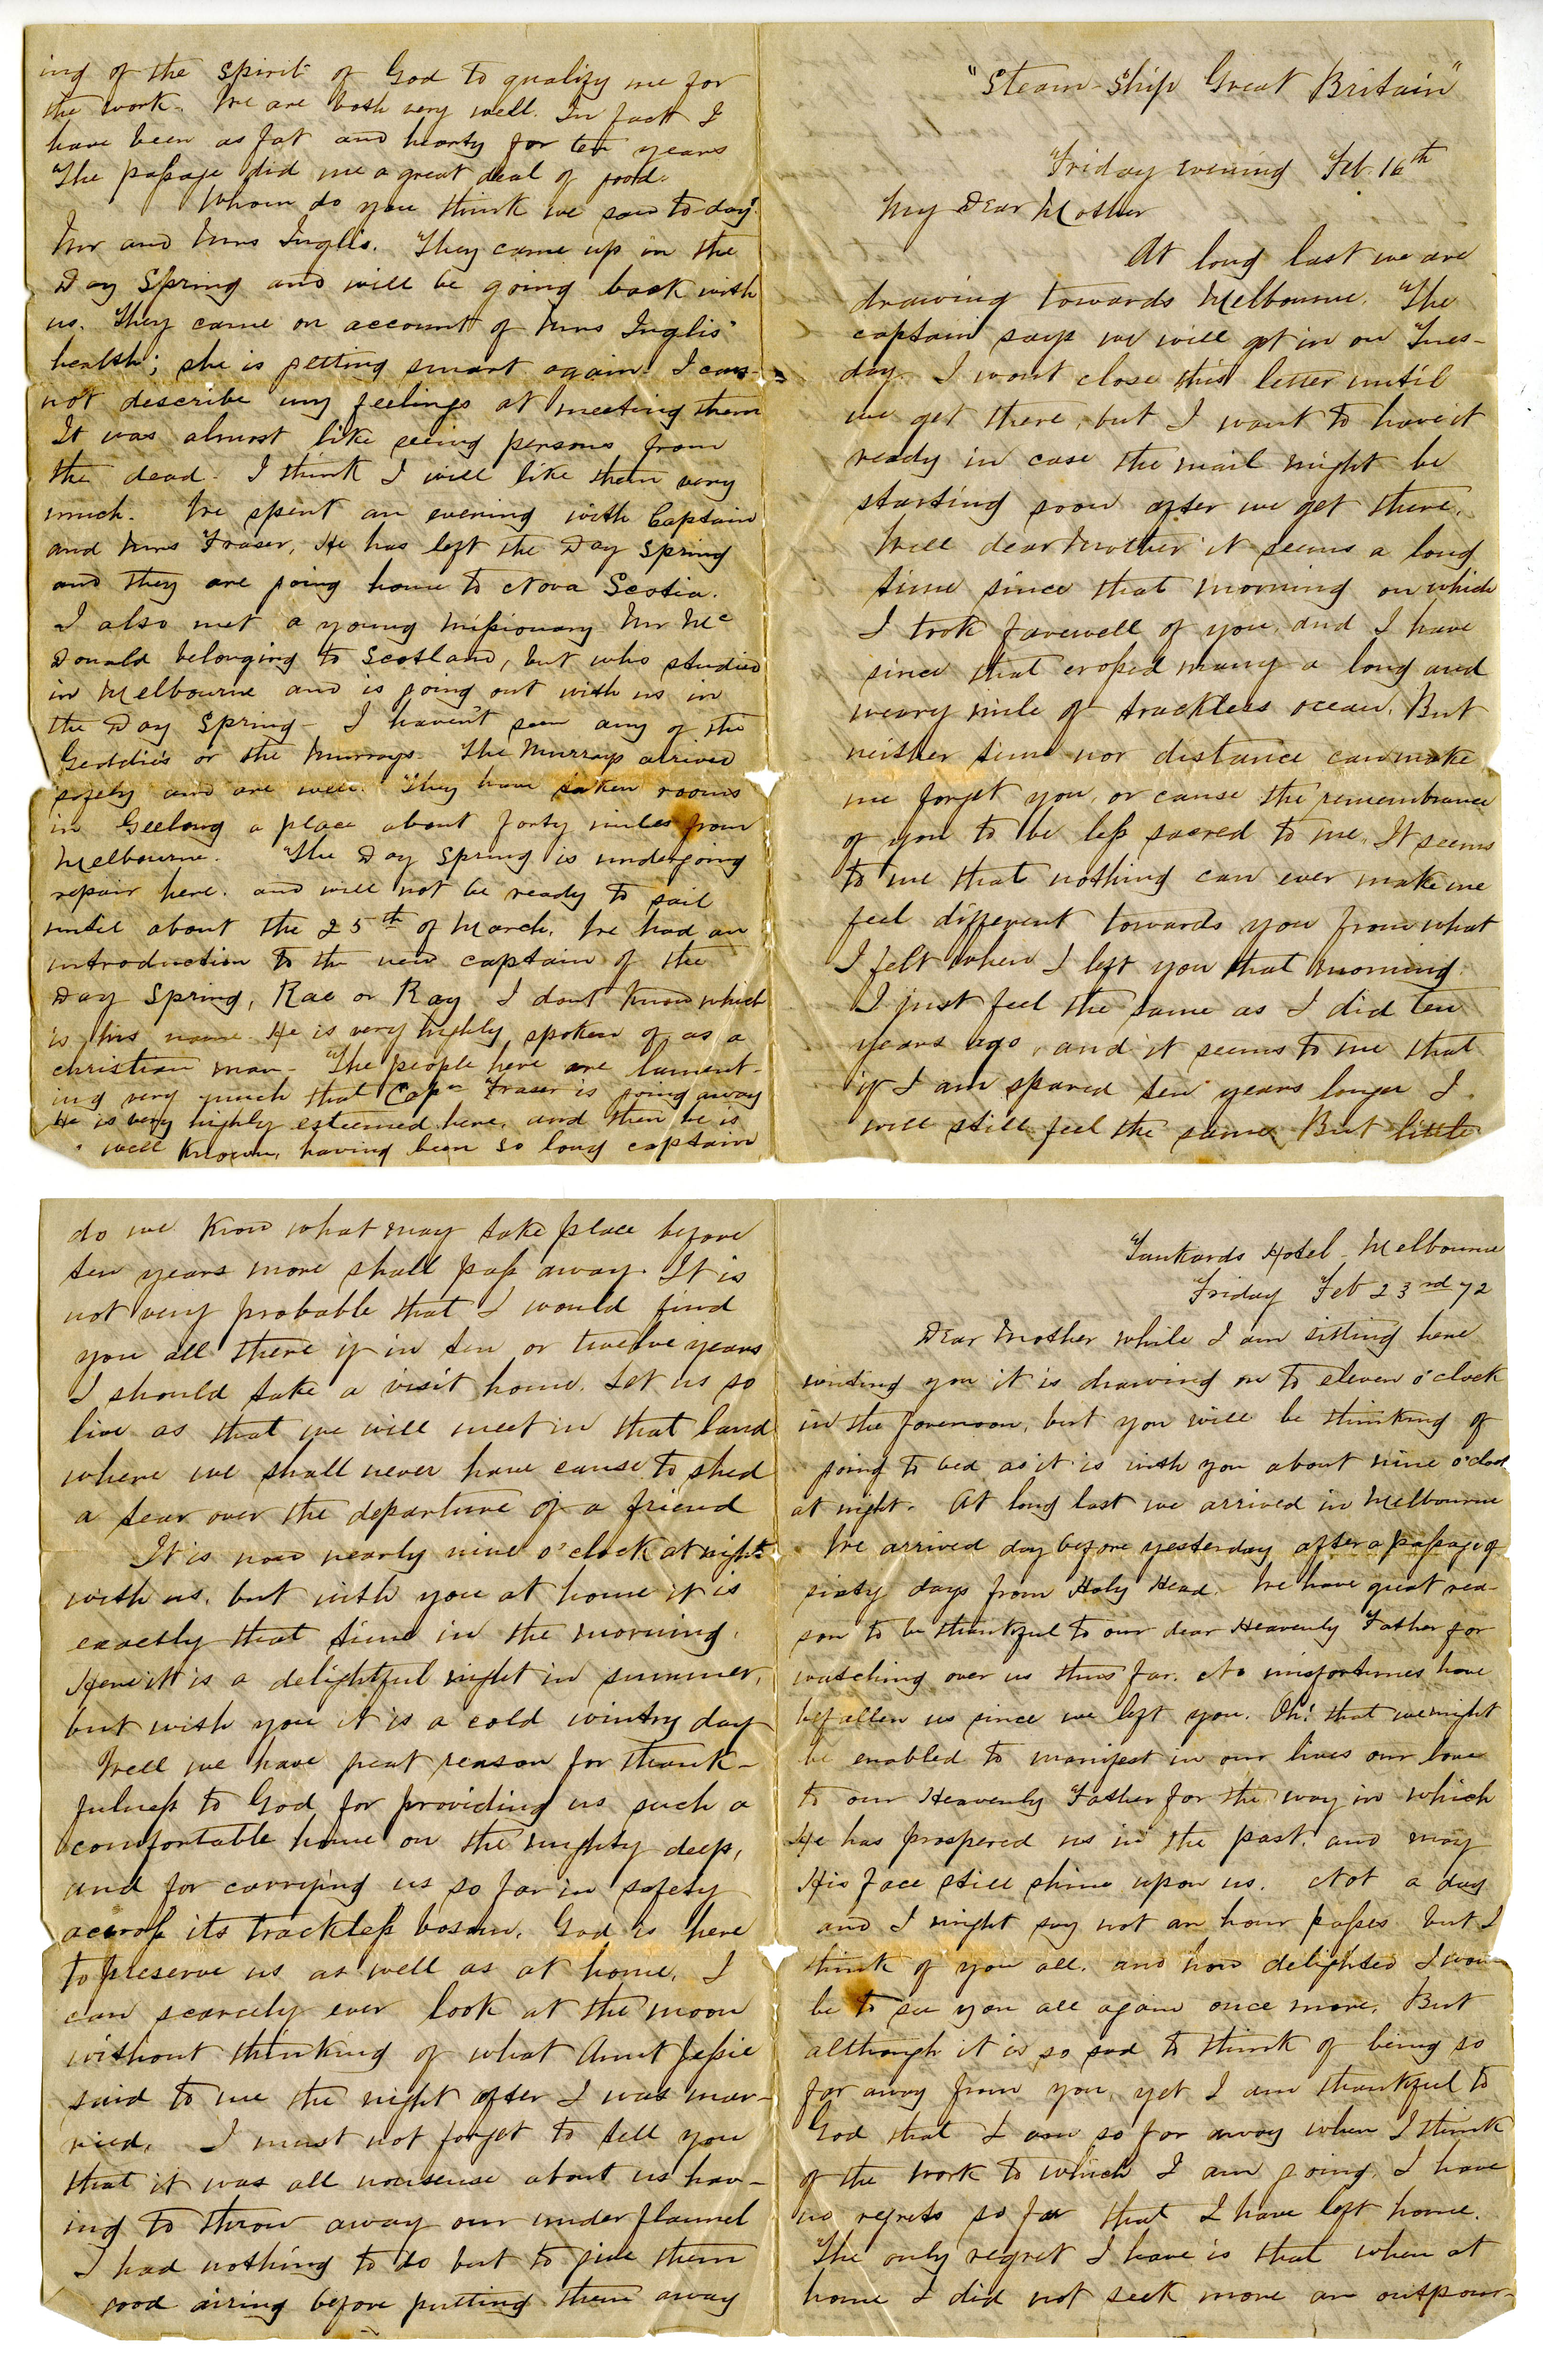 "Steam-Ship Great Britain"
Friday evening Feb. 16th
My Dear Mother
At long last we are
drawing towards Melbourne. The
captain says we will get in on Tues-
day. I wont close this letter until
we get there, but I want to have it
ready in case the mail might be
starting soon after we get there.
Well dear Mother it seems a long
time since that morning on which
I took farewell of you, and I have
since that crossed many a long and
weary mile of trackless ocean. But
neither time nor distance can make
me forget you, or cause the remembrance
of you to be less sacred to me. It seems
to me that nothing can ever make me
feel different towards you from what
I felt when I left you that morning.
I just feel the same as I did ten
years ago, and it seems to me that
if I am spared ten years longer I
will still feel the same. But little
do we know what may take place before
ten years more shall pass away. It is
not very probable that I would find
you all there if in ten or twelve years
I should take a visit home. Let us so
live as that we will meet in that land
where we shall never have cause to shed
a tear over the departure of a friend
It is now nearly nine o'clock at night
with us, but with you at home it is
exactly that time in the morning.
Here it is a delightful night in summer,
but with you it is a cold wintry day
Well we have great reason for thank-
fulness to God for providing us such a
comfortable home on the mighty deep,
and for carrying us so far in safety
across its trackless bosom. God is here
to preserve us as well as at home. I
can scarcely ever look at the moon
without thinking of what Aunt Jessie
said to me the night after I was mar-
ried. I must not forget to tell you
that it was all nonsense about us hav-
ing to throw away our under flannel
I had nothing to do but to give them
good airing before putting them away
Tankards Hotel - Melbourne
Friday Feb 23rd 72
Dear Mother while I am sitting here
writing you it is drawing on to eleven o'clock
in the forenoon, but you will be thinking of
going to bed as it is with you about nine o'clock
at night. At long last we arrived in Melbourne
We arrived day before yesterday after a passage of
sixty days from Holy Head. We have great rea-
son to be thankful to our dear Heavenly Father for
watching over us thus far. No misfortunes have
befallen us since we left you. Oh! that we might
be enabled to manifest in our lives our love
to our Heavenly Father for the way in which
He has prospered us in the past, and may
His face still shine upon us. Not a day
and I might say not an hour passes but I
think of you all, and how delighted I would
be to see you all again once more. But
although it is so sad to think of being so
far away from you, yet I am thankful to
God that I am so far away when I think
of the work to which I am going. I have
no regrets so far that I have left home.
The only regret I have is that when at
home I did not seek more an outpour-
ing of the Spirit of God to qualify me for
the work. We are both very well. In fact I
have been as fat and hearty for ten years
The passage did me a great deal of good.
Whom do you think we saw to-day?
Mr and Mrs Inglis. They came up in the
Day Spring and will be going back with
us. They came on account of Mrs Inglis'
health; she is getting smart again. I can-
not describe my feelings at meeting them
It was almost like seeing persons from
the dead. I think I will like them very
much. We spent an evening with Captain
and Mrs Fraser, He has left the Day Spring
and they are going home to Nova Scotia.
I also met a young missionary Mr Mc
Donald belonging to Scotland, but who studied
in Melbourne and is going out with us in
the Day Spring - I haven't seen any of the
Geddie's or the Murrays. The Murrays arrived
safely and are well. They have taken rooms
in Geelong a place about forty miles from
Melbourne. The Day Spring is undergoing
repair here, and will not be ready to sail
until about the 25th of March. We had an
introduction to the new captain of the
Day Spring, Rae or Ray I dont know which
is his name. He is very highly spoken of as a
christian man - The people here are lament-
ing very much that Capn Fraser is going away
He is very highly esteemed here, and then he is
well known, having been so long captain